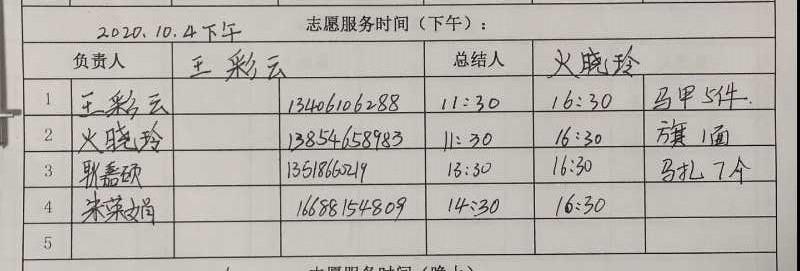 2020.10.4下午 志愿服务时间（下午）：
负责人 王彩云 总结人 火晓玲
1 王彩云 13406106288 11:30 16:30 马甲5件.
2 火晓玲 13854658983 11:30 16:30 旗1面
3 耿嘉硕 13:30 16:30 马扎7个
4 米荣娟 16688154809 14:30 16:30
5
志愿服务时间（晚上）